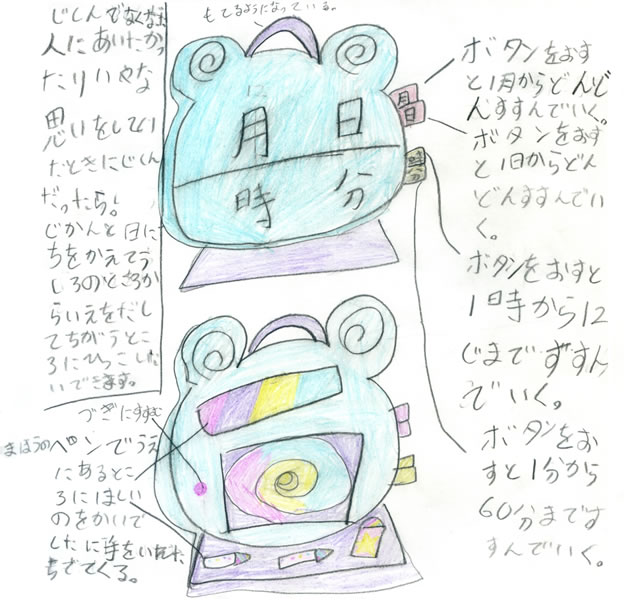 もてるようになっている。
じしんでなくなった
人にあいたかっ
たりいやな
思いをしてい
たときにじしん
だったら。
じかんと日に
ちをかえてう
しろのところか
らいえをだし
てちがうとこ
ろにひっこしだ
いできます。
月
日
時
分
月
日
時
分
ボタンをおす
と1月からどんど
んすすんでいく。
ボタンをおす
と1日からどん
どんすすんでい
く。
ボタンをおすと
1日時から12
じまでずすん
でいく。
ボタンをお
すと1分から
60分まです
すんでいく。
つぎにすすむ
まほうの
ペンでうえ
にあるとこ
ろにほしい
のをかいで
したに手をいれた
らでてくる。